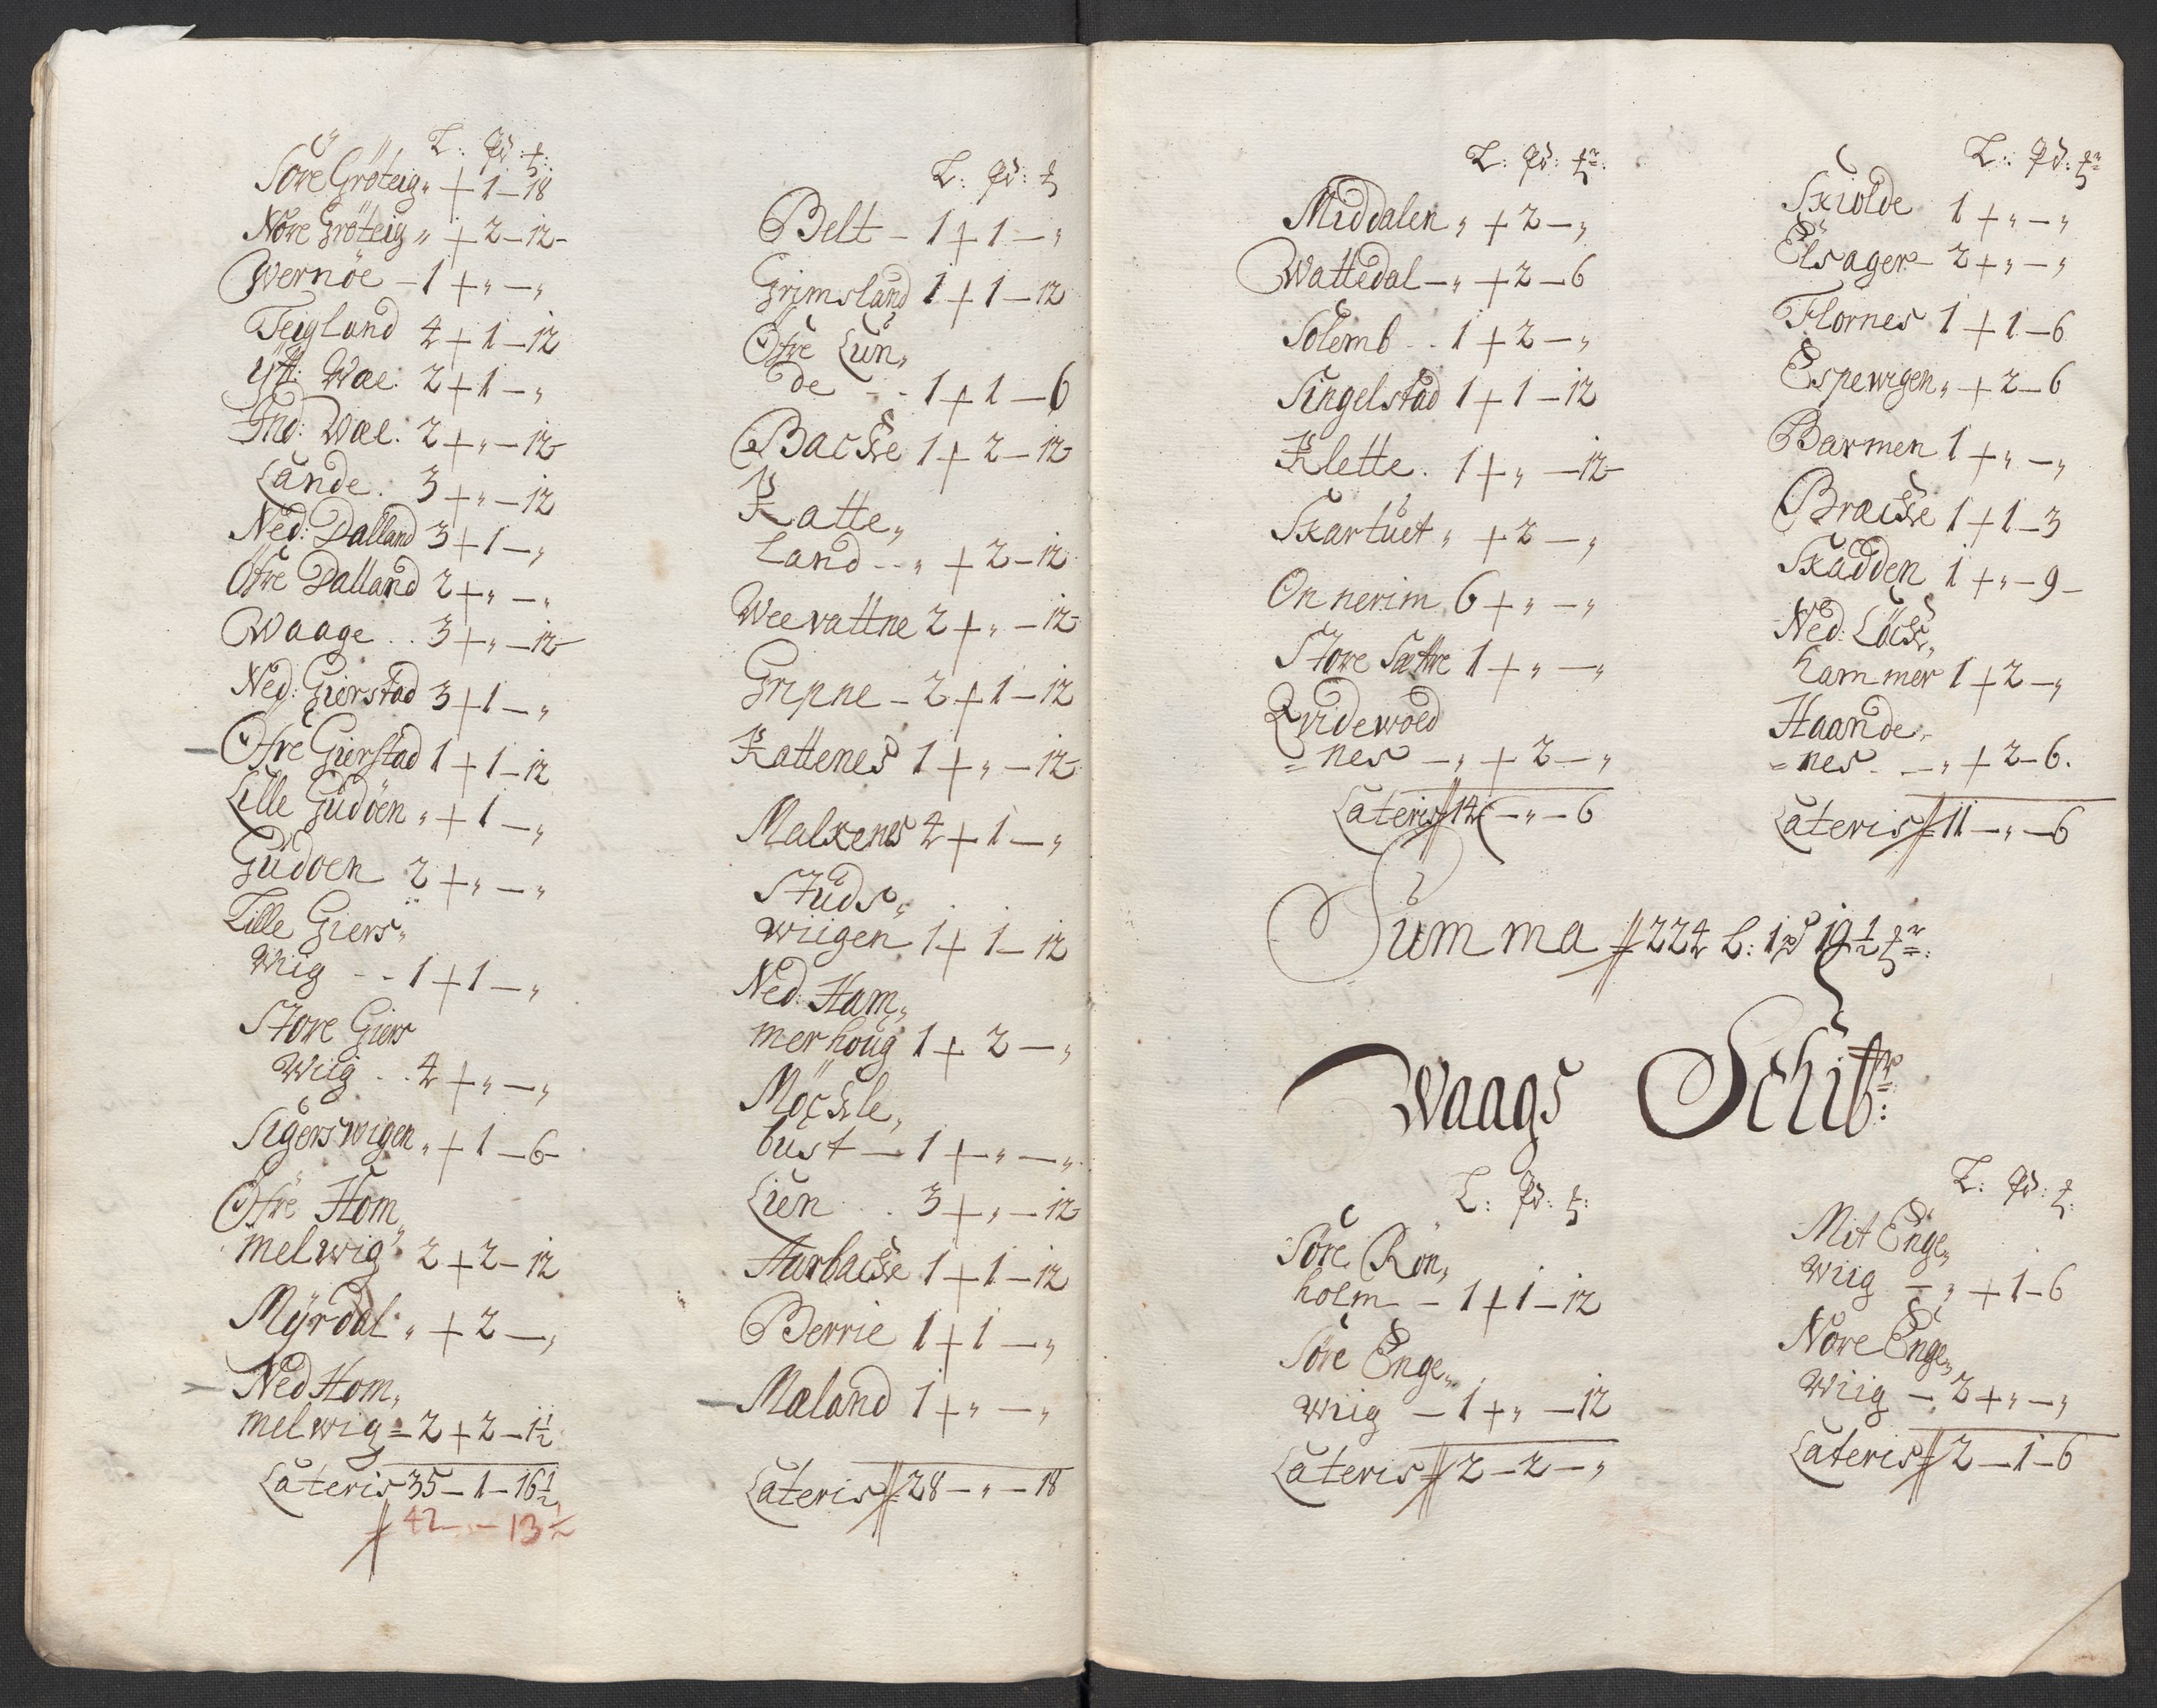 L: Pd: ℔:
Søre Grøteig „ + 1 – 18
Nore Grøteig „ + 2 – 12 –
Wernöe – 1 + „ – „
Teigland 4 + 1 – 12
Yt: Wae: 2 + 1 – „
Ind: Wae: 2 + „ – 12
Lande: 3 + „ – 12
Ned: Dalland 3 + 1 – „
Öfre Dalland 2 + „ – „
Waage .. 3 + „ – 12
Ned: Gierstad 3 + 1 – „
Öfre Gierstad 1 + 1 – 12
Lille Gudöen „ + 1 – „
Gudoen 2 + „ – „
Lille Giers„
Wiig - - 1 + 1 – „
Store Giers
Wiig . . 4 + „ – „
Sigerswigen „ + 1 – 6 –
Öfre Hom„
melwig 2 + 2 – 12
Myrdal „ + 2 – „
Ned Hom„
melwig = 2 + 2 – 1½
Lateris 35 – 1 – 16½
42 – – 13½
L: Pd: ℔
Belt – 1 + 1 – „
Grimsland 1 + 1 – 12
Öfre Lun„
de - - 1 + 1 – 6
Backe 1 + 2 – 12
Katte„
Land - - „ + 2 – 12
Weevattne 2 + „ – 12
Gripne – 2 + 1 – 12
Kattenes 1 + „ – 12
Malkenes 4 + 1 – „
Studs„
wiigen 1 + 1 – 12
Ned: Ham„
merhoug 1 + 2 – „
Möckle„
bust – 1 + „ – „
Lien . . 3 + „ – 12
Hurbacke 1 + 1 – 12
Berrie 1 + 1 – „
Mæland 1 + „ – „
Lateris 28 – „ – 18
L: Pd: ℔r:
Middalen „ + 2 – „
Wattedal – „ + 2 – 6
Solemb . . 1 + 2 – „
Singelstad 1 + 1 – 12
Klette . 1 + „ – 12 –
Skartuet „ + 2 – „
Onnerim 6 + „ – „
Store Sættre 1 + „ – „
Qvidewold
= nes – „ + 2 – „
Lateris 14 – „ – 6
L: Pd: ℔r
Skiolde 1 + „ – „
Elsager – 2 + „ – „
Flornes 1 + 1 – 6
Espewigen „ + 2 – 6
Barmen 1 + „ – „
Bracke 1 + 1 – 3
Skadden 1 + „ – 9 –
Ned: Löck„
hammer 1 + 2 – „
Haande„
= nes - – „ + 2 – 6.
Lateris 11 – „ – 6
Summa 224 L: 1 pd 19½ ℔r:
Waags Schibr:
L: Pd: ℔:
Søre Ron„
holm – 1 + 1 – 12
Søre Enge„
wiig – 1 + „ – 12
Lateris 2 – 2 – „
L: Pd: ℔:
Mit Enge„
wiig – „ + 1 – 6
Nore Enge„
Wiig – 2 + „ – „
Lateris 2 – 1 – 6